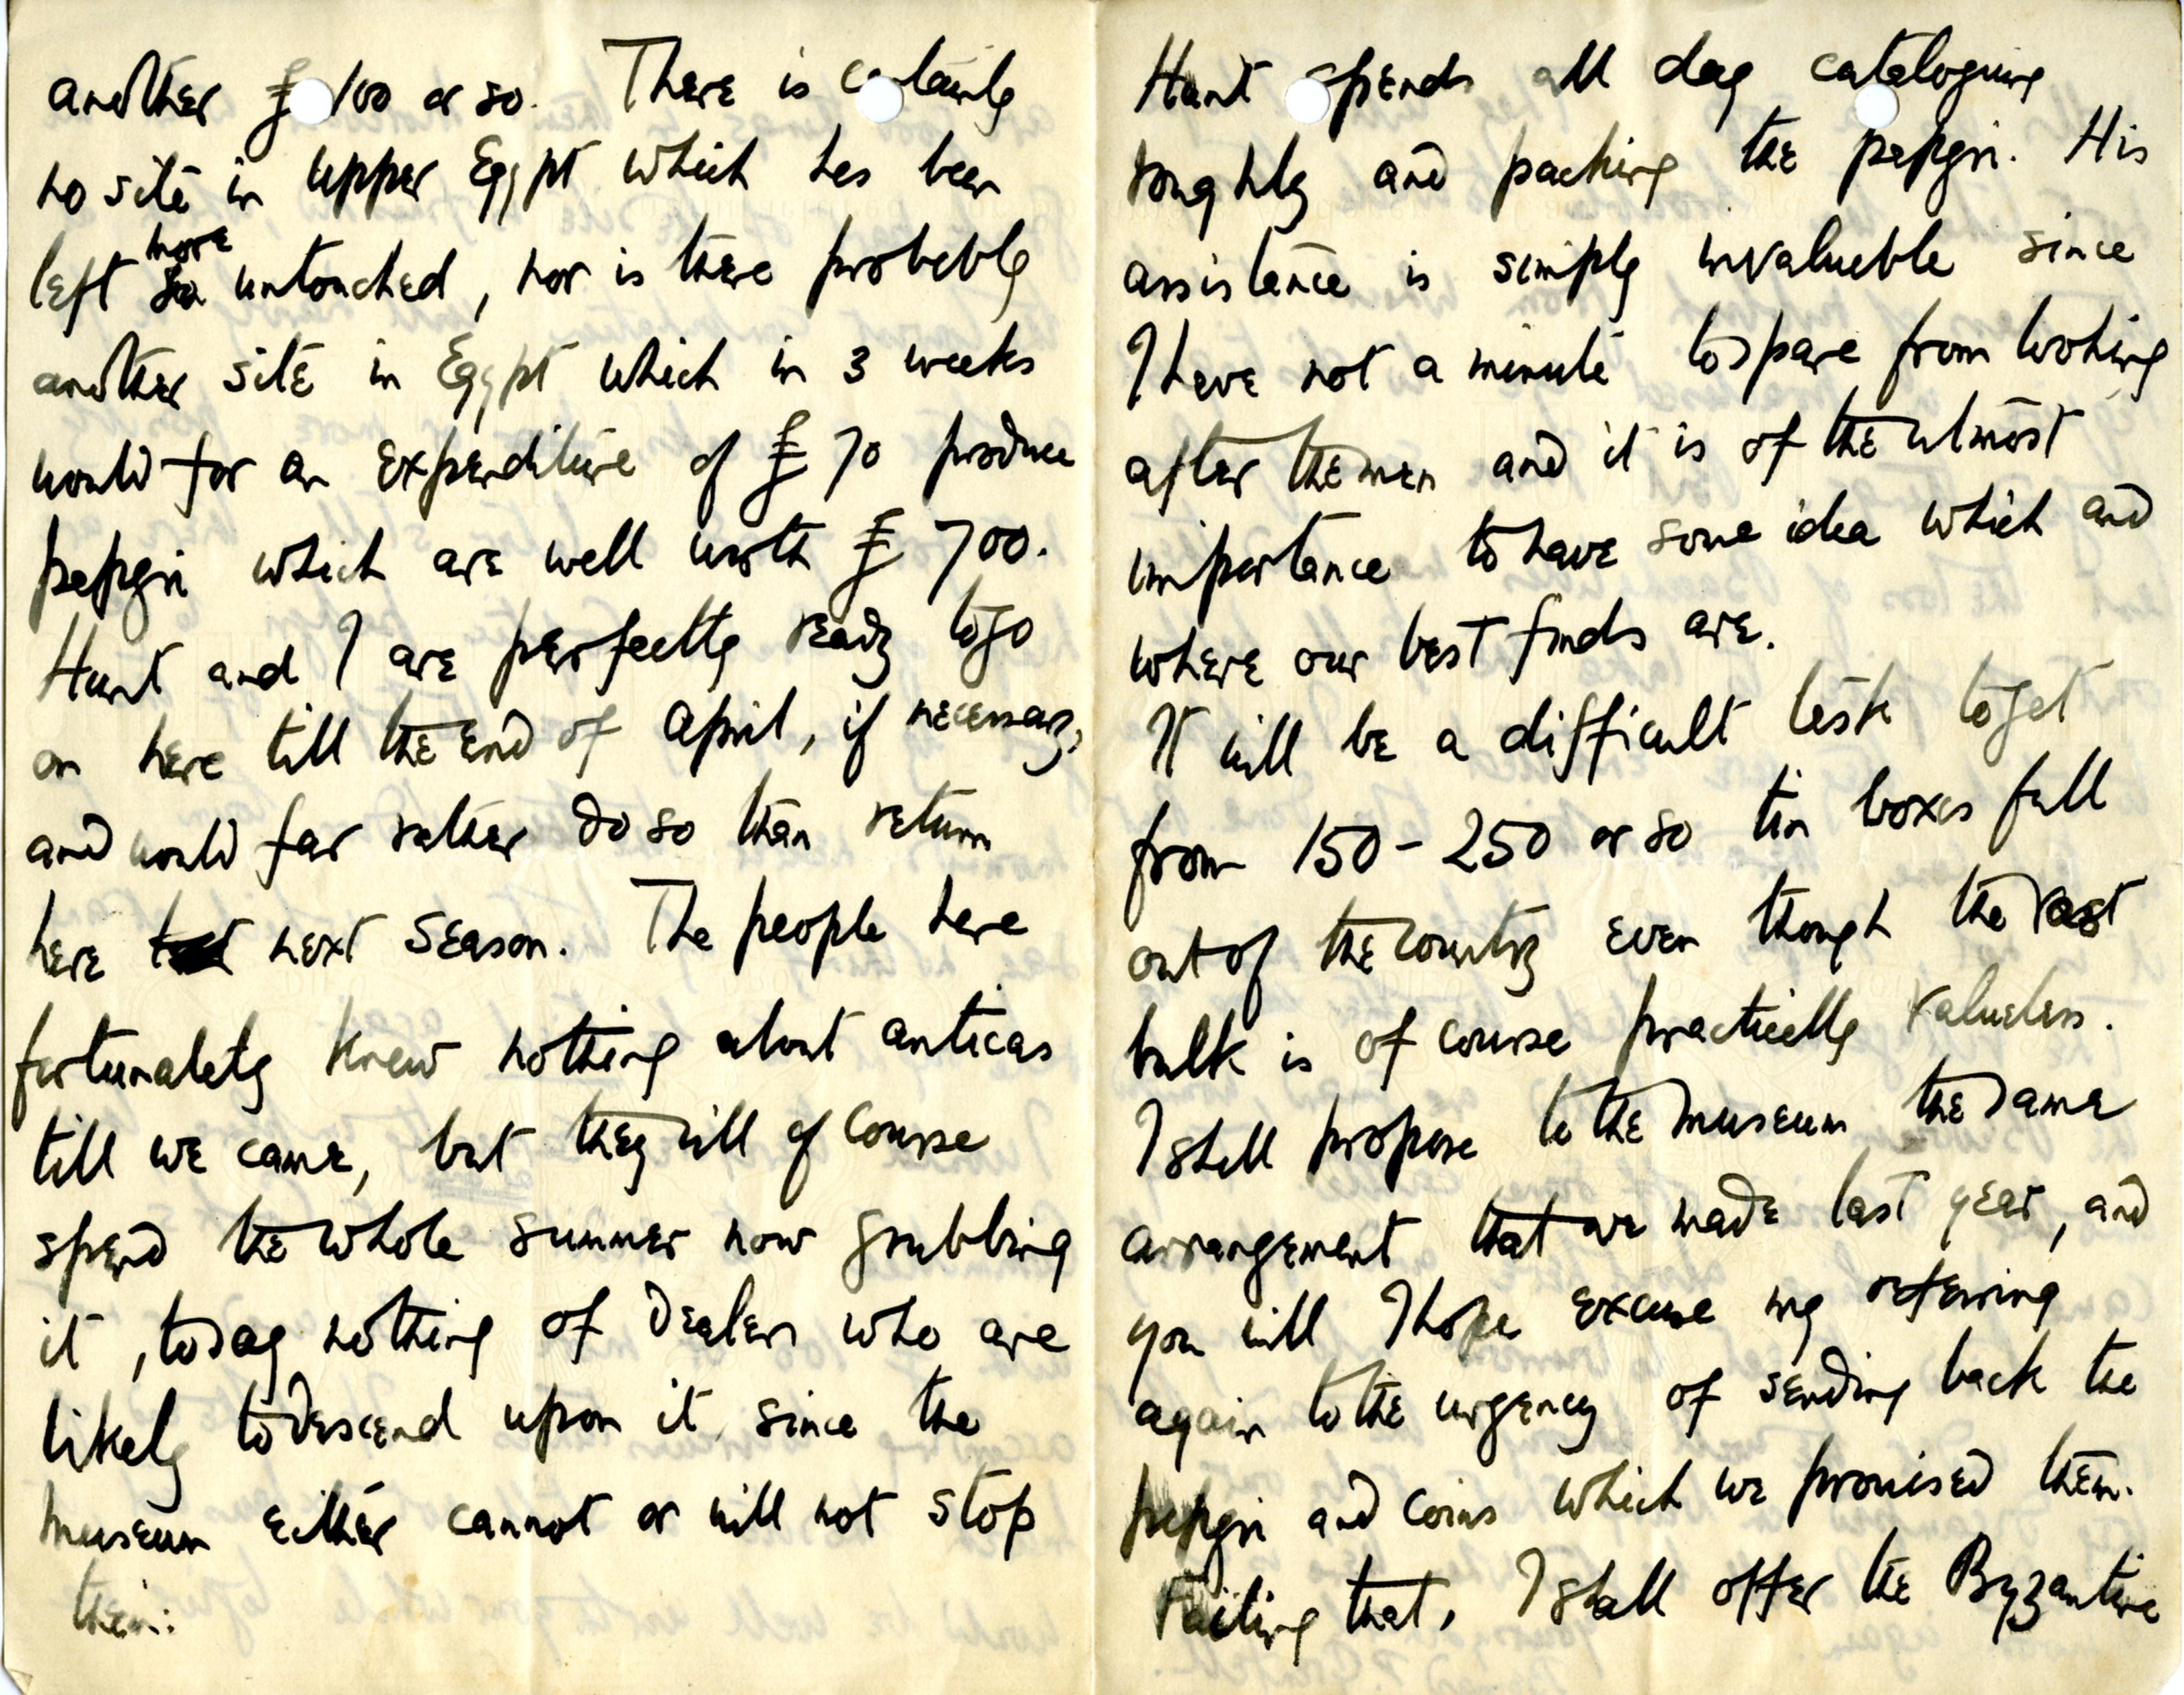 another £ 100 or so. There is certainly
no site in upper Egypt which has been
more
left so untouched, nor is there probably
another site in Egypt which in 3 weeks
would for an expenditure of £ 70 produce
papyri which are well worth £ 700.
Hunt and I are perfectly ready to go
on here till the end of April, if necessary,
and would far rather do so than return
here next season. The people here
fortunately knew nothing about anticas
till we came, but they will of course
spend the whole summer now grubbing
it, to say nothing of dealers who are
likely to descend upon it since the
museum either cannot or will not stop
them.
Hunt spends all day cataloguing
roughly and packing the papyri. His
assistance is simply invaluable since
I have not a minute to spare from looking
after the men and it is of the utmost
importance to have some idea which and
where our best finds are.
It will be a difficult task to get
from 150 - 250 or so tin boxes full
out of the country even though the vast
bulk is of course practically valueless.
I shall propose to the museum the same
arrangement that we made last year, and
you will I hope excuse my referring
again to the urgency of sending back the
papyri and coins which we promised them.
Failing that, I shall offer the Byzantine